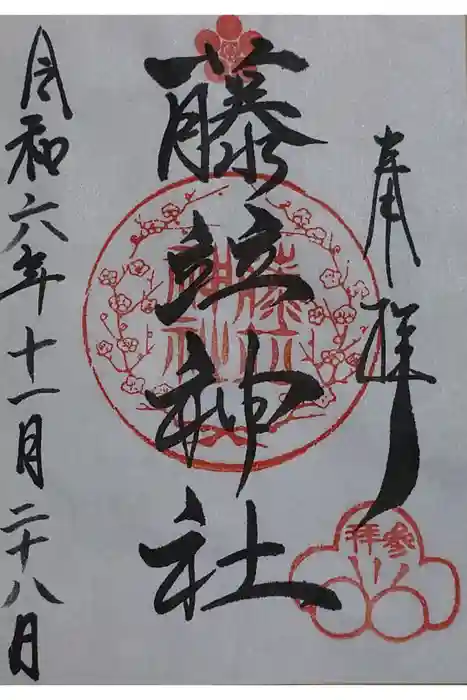 奉拝
藤竝神社
令和六年十一月二十八日
藤竝
神社
參拝